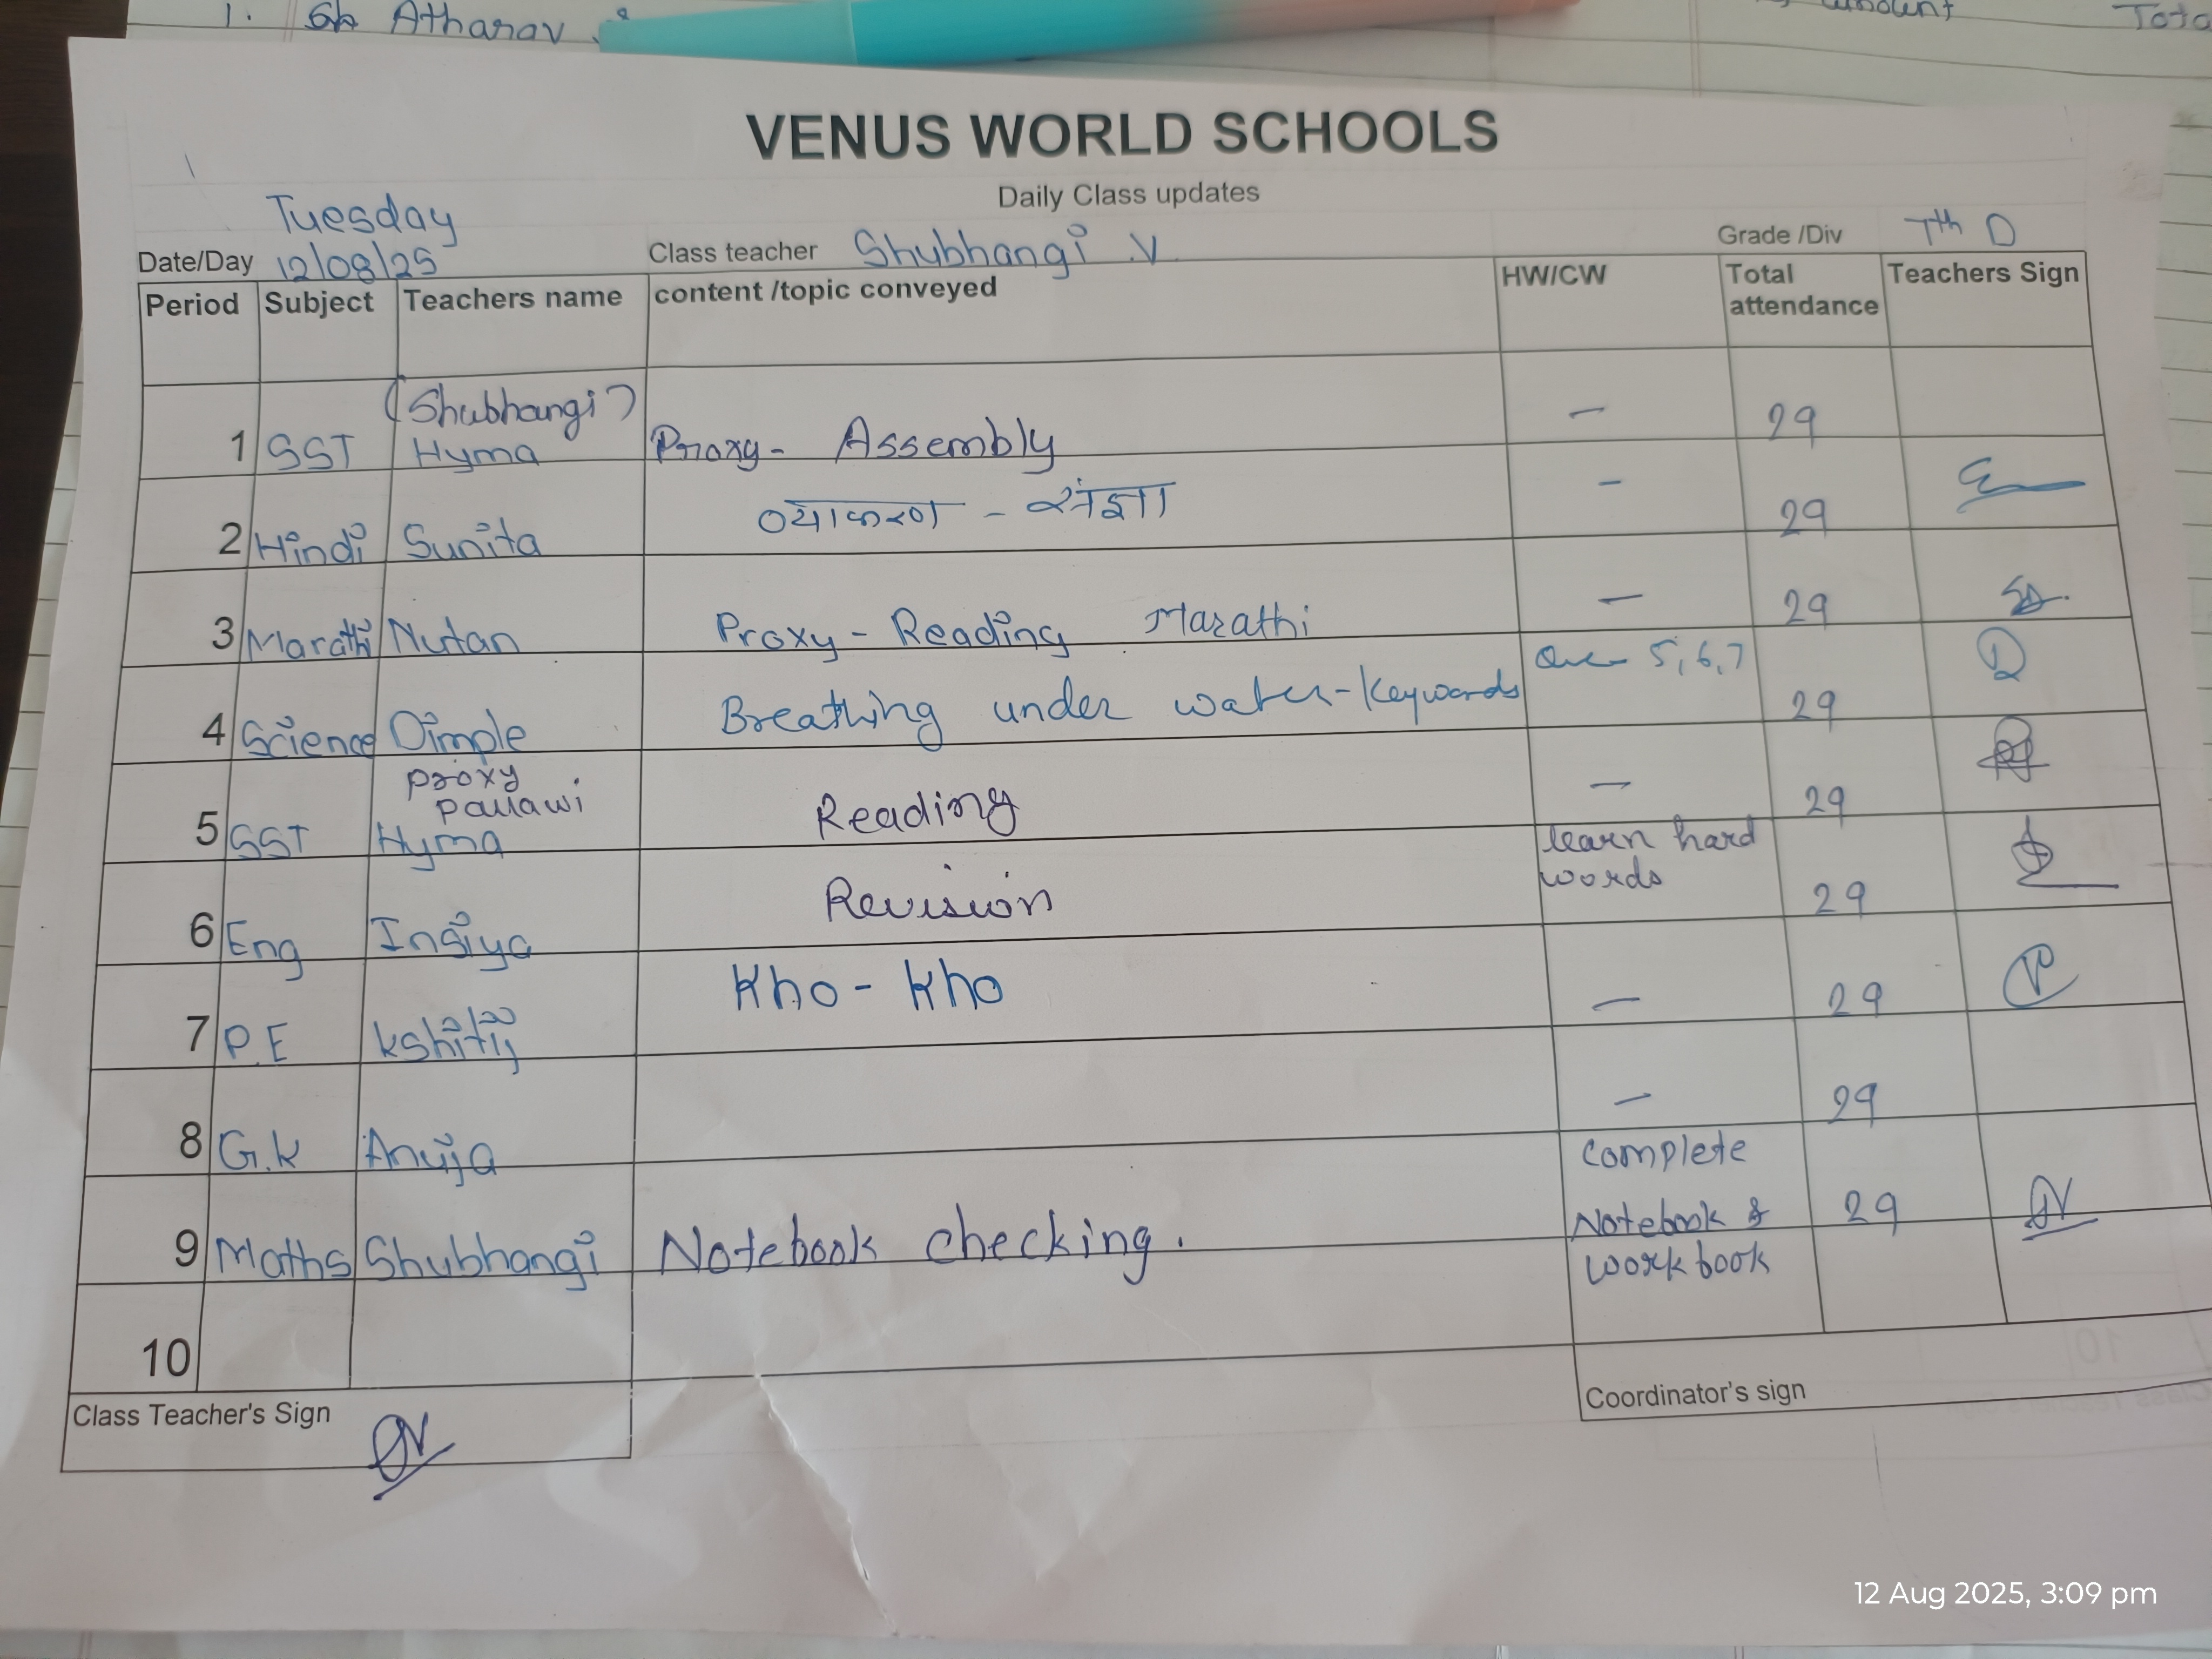 1. Atharav
Total
VENUS WORLD SCHOOLS
Daily Class updates
Date/Day Tuesday 12/08/25 Class teacher Shubhangi .V Grade /Div 7th D
Period Subject Teachers name content /topic conveyed HW/CW Total attendance Teachers Sign
1 SST (Shubhangi) Hyma Proxy - Assembly — 29
2 Hindi Sunita व्याकरण - संज्ञा - 29
3 Marathi Nutan Proxy - Reading Marathi — 29
4 Science Dimple Breathing under water - Keywords Que 5, 6, 7 29
5 SST proxy Pallawi Hyma Reading — 29
6 Eng Insiya Revision learn hard words 29
7 P.E kshitij Kho - kho — 29
8 G.K Anuja — 29
9 Maths Shubhangi Notebook checking. complete Notebook & workbook 29
10
Class Teacher's Sign
Coordinator's sign
12 Aug 2025, 3:09 pm